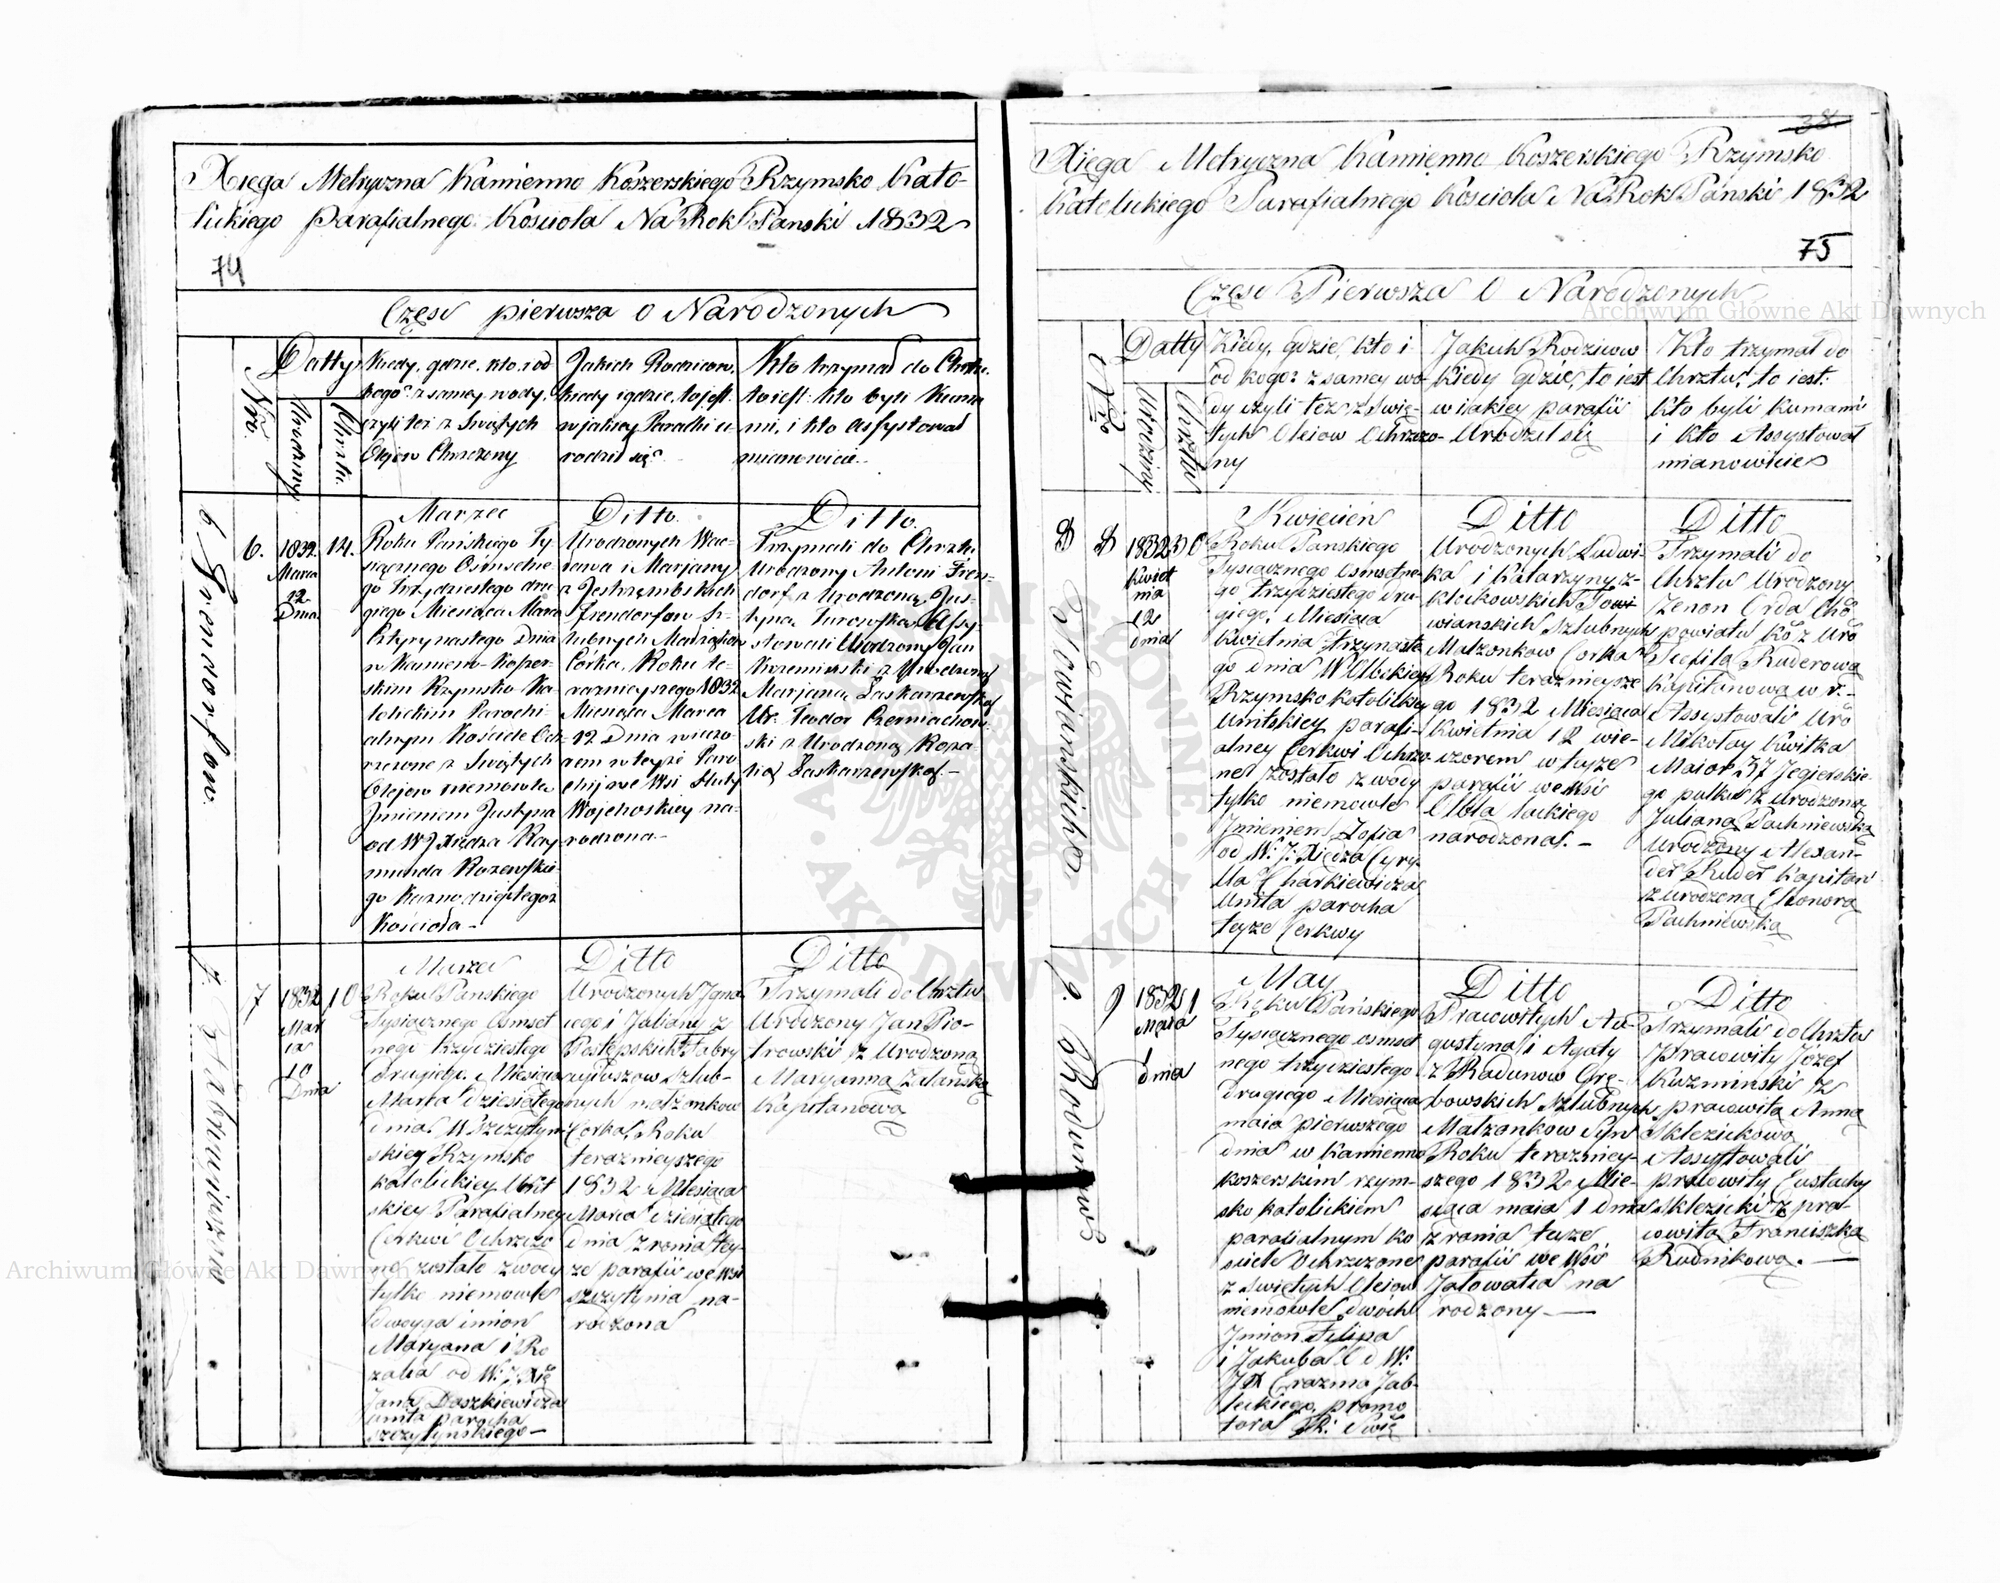 Xięga Metryczna Kamienno Koszerskiego Rzymsko Kato-
lickiego Parafialnego Kościoła Na Rok Panski 1832
74
Częsc pierwsza o Narodzonych
Nro.
Datty
Urodziny
Chrztu.
Kiedy, gdzie, kto i od
kogo? z samey wody.
czyli też z Swiętych
Olejow Chrzczony
Jakich Rodzicow,
kiedy i gdzie, to jest.
w jakiey Parafii u-
rodził się?
Kto trzymał do Chrztu.
to iest: kto byli Kuma
mi, i kto Assystował
mianowicie.
6.
6.
1832.
Marca
12
Dnia.
14.
Marzec
Roku Pańskiego Ty-
siącznego Osmsetne-
go Trzydziestego dru
giego Miesiąca Marca
Cztyrynastego Dnia
w Kamieno-Koszer-
skim Rzymsko Ka-
tolickim Parochi-
alnym Kościele Och-
rzczone z Swiętych
Olejow niemowle
Jmieniem Justyna
od WJ Xiędza Ray
munda Rozewskie-
go Kaznodzieitegoż
Kościoła-
Ditto.
Urodzonych Wac-
ława i Marjany
z Jestrzembskich
Frendorfow Sz-
lubnych Małżonkow
Córka. Roku te-
razniejszego 1832
Miesiąca Marca
12 Dnia wieczo-
rem w teyże Paro
chij we Wsi Huty
Wojehoskiey na-
rodzona-
Ditto.
Trzymali do Chrztu
Urodzony Antoni Fren-
dorf z Urodzoną Jus-
tyną Turowską Assy-
stowali Urodzony Jan
Krzemieński z Urodzoną
Marjaną Łaskarzewską
Ur. Teodor Czerniachow-
ski z Urodzoną Roza
lią Łaskarzewską.-
7.
7
1832
Mar
ca
10
Dnia
10
Marzec
Roku Panskiego
Tysiącznego Osmset
nego trzydziestego
Drugiego. Miesiąca
Marca dziesiątego
dnia W Szczytyn
skiey Rzymsko
katolickiey Unit
skiey Parafialney
Cerkwi Ochrzczo
ne zostało z wody
tylko niemowle
dwoyga imion
Maryana i Ro
zalia od W: J Xię
Jana Daszkiewicza
unita parocha
szczytynskiego-
Ditto
Urodzonych Jgna
cego i Julianny z
Postępskich Fabry
cyuszow Szlub-
nych małżonkow
Corka, Roku
terazniejszego
1832 Miesiąca
Marca dziesiątego
dnia z rania tey-
ze parafii we wsi
szczytynia na-
rodzona
Ditto
Trzymali do Chrztu
Urodzony Jan Pio-
trowski z Urodzoną
Maryanną Zalanską
Kapitanową
38.
Xięga Metryczna Kamienno Koszerskiego Rzymsko
Katolickiego Parafialnego Kościoła Na Rok Panski 1832
75
Częsc Pierwsza O Narodzonych
Nro
Datty
Urodziny
Chrztu
Kiedy, gdzie, kto i
od kogo? z samey wo-
dy czyli tez z Swię-
tych Oleiow Ochrzczo-
ny
Jakich Rodzicow
Kiedy Gdzie, to iest
w iakiey parafii
Urodził się
Kto trzymał do
Chrztu? to iest:
kto byli kumami
i kto Assystował
mianowicie
8
8
Towianskich
1832
Kwiet
nia
12
dnia
30
Kwiecien
Roku Panskiego
Tysiącznego Osmsetne-
go trzydziestego dru-
giego, Miesiąca
kwietnia trzynaste
go dnia W Olbickiey
Rzymsko katolickiey
Unitskiey parafi-
alney Cerkwi Ochrzczo
ne zostało z wody
tylko niemowle
Jmieniem Zofia
od W: J: Xiędza Cyry-
lla Charkiewicza
Unita parocha
teyze Cerkwy
Ditto
Urodzonych Ludwi-
ka i Katarzyny z-
Klcikowskich Towi
wianskich Szlubnych
Małzonkow Corka
Roku terazniejsze
go 1832 Miesiąca
kwietnia 12 wie-
czorem w teyze
parafii we wsi
Olbla lackiego
narodzona. -
Ditto
Trzymali do
Chrztu Urodzony
Zenon Orda Cho
powiatu Ko z Uro
Teofilą Ruderową
kapitanową w r.-
Assystowali Uro
Mikołay Kwitka
Maior 37 Jegierskie-
go pułku z urodzoną
Julianą Pachniewską
Urodzony Alexan-
der Ruder kapitan
z urodzoną Eleonorą
Pachniewską
9.
9
1832
Maia
1
dnia
1
May
Roku Pańskiego
Tysiącznego osmset
nego trzydziestego
drugiego Miesiąca
maia pierwszego
dnia w kamienno
koszerskim rzym-
sko katolickiem
parafialnym ko
sciele Ochrzczone
z swiętych Oleiow
niemowle dwóch
Jmion Filipa
i Jakuba Od W:
JX Erazma Jab-
łeckiego, promo
tora R: Swię
Ditto
Pracowitych Au-
gustyna i Agaty
z Radunow Grę-
bowskich Szlubnych
Małzonkow Syn
Roku terazniey-
szego 1832 Mie-
siąca maia 1 dnia
z rania teyze
parafii we Wsi
Jałowatia na
rodzony-
Ditto
Trzymali do Chrztu
Pracowity Józef
Kuzminski z
pracowitą Anną
Sklezickową
Assystowali
pracowity Eustachy
Sklezicki z pra-
cowitą Franciszką
Rudnikową.
Archiwum Główne Akt Dawnych
Archiwum Główne Akt Dawnych